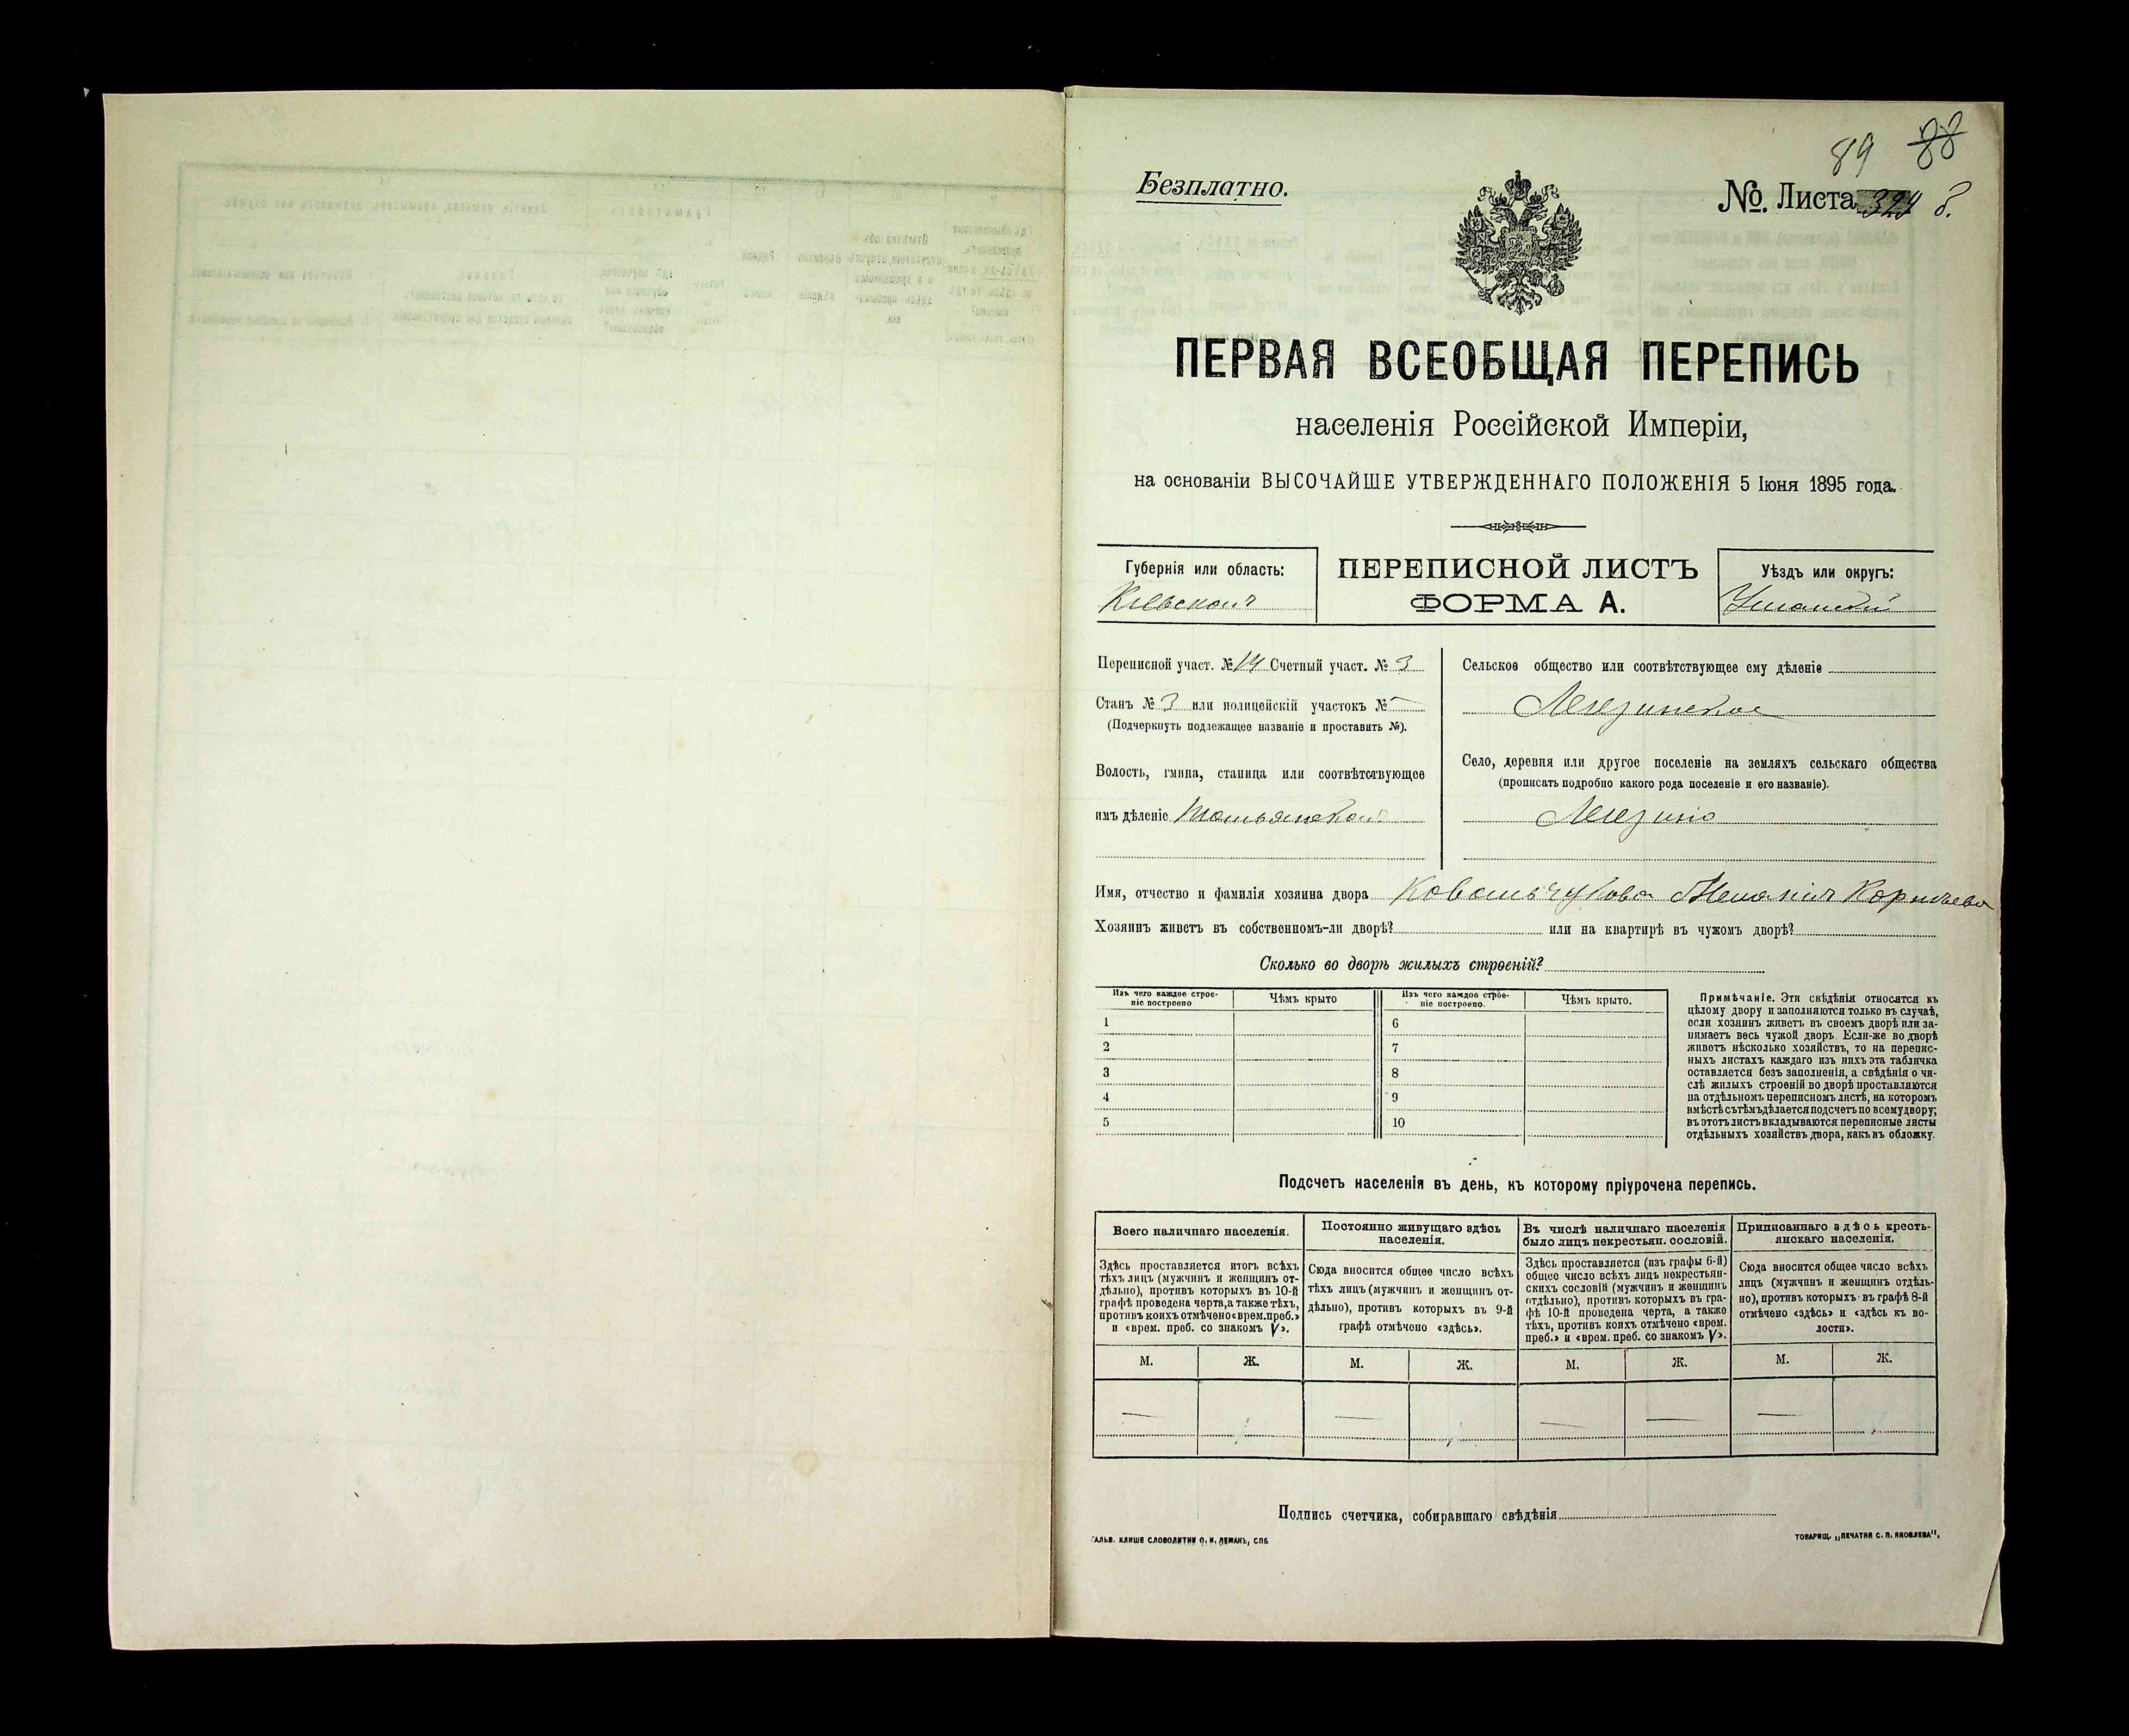 89 88
Безплатно.
№. Листа 324 б.
ПЕРВАЯ ВСЕОБЩАЯ ПЕРЕПИСЬ
населенія Россійской Имперіи,
на основаніи ВЫСОЧАЙШЕ УТВЕРЖДЕННАГО ПОЛОЖЕНІЯ 5 Іюня 1895 года.
Губернія или область:
Кіевская
ПЕРЕПИСНОЙ ЛИСТЪ
ФОРМА А.
Уѣздъ или округъ:
Уманскій
Переписной участ. № 14 Счетный участ. № 3
Станъ № 3 или полицейскій участокъ № —
(Подчеркнуть подлежащее названіе и проставить №).
Волость, гмина, станица или соотвѣтствующее
имъ дѣленіе Тальянская
Сельское общество или соотвѣтствующее ему дѣленіе
Легезинское
Село, деревня или другое поселеніе на земляхъ сельскаго общества
(прописать подробно какого рода поселеніе и его названіе).
Легезино
Имя, отчество и фамилія хозяина двора Ковальчукова Меланія Корнѣева
Хозяинъ живетъ въ собственномъ-ли дворѣ? или на квартирѣ въ чужомъ дворѣ?
Сколько во дворѣ жилыхъ строеній?
Изъ чего каждое строе-
ніе построено
Чѣмъ крыто
Изъ чего каждое строе-
ніе построено.
Чѣмъ крыто.
1 6
2 7
3 8
4 9
5 10
Примѣчаніе. Эти свѣдѣнія относятся къ
цѣлому двору и заполняются только въ случаѣ,
если хозяинъ живетъ въ своемъ дворѣ или за-
нимаетъ весь чужой дворъ. Если-же во дворѣ
живетъ нѣсколько хозяйствъ, то на перепис-
ныхъ листахъ каждаго изъ нихъ эта табличка
оставляется безъ заполненія, а свѣдѣнія о чи-
слѣ жилыхъ строеній во дворѣ проставляются
на отдѣльномъ переписномъ листѣ, на которомъ
вмѣстѣ съ тѣмъ дѣлается подсчетъ по всему двору;
въ этотъ листъ вкладываются переписные листы
отдѣльныхъ хозяйствъ двора, какъ въ обложку.
Подсчетъ населенія въ день, къ которому пріурочена перепись.
Всего наличнаго населенія.
Здѣсь проставляется итогъ всѣхъ
тѣхъ лицъ (мужчинъ и женщинъ от-
дѣльно), противъ которыхъ въ 10-й
графѣ проведена черта, а также тѣхъ,
противъ коихъ отмѣчено «врем. преб.»
и «врем. преб. со знакомъ V».
Постоянно живущаго здѣсь
населенія.
Сюда вносится общее число всѣхъ
тѣхъ лицъ (мужчинъ и женщинъ от-
дѣльно), противъ которыхъ въ 9-й
графѣ отмѣчено «здѣсь».
Въ числѣ наличнаго населенія
было лицъ некрестьян. сословій.
Здѣсь проставляется (изъ графы 6-й)
общее число всѣхъ лицъ некрестьян-
скихъ сословій (мужчинъ и женщинъ
отдѣльно), противъ которыхъ въ гра-
фѣ 10-й проведена черта, а также
тѣхъ, противъ коихъ отмѣчено «врем.
преб.» и «врем. преб. со знакомъ V».
Приписаннаго здѣсь кресть-
янскаго населенія.
Сюда вносится общее число всѣхъ
лицъ (мужчинъ и женщинъ отдѣль-
но), противъ которыхъ въ графѣ 8-й
отмѣчено «здѣсь» и «здѣсь къ во-
лости».
М. Ж. М. Ж. М. Ж. М. Ж.
— 1 — 1 — — — 1
Подпись счетчика, собиравшаго свѣдѣнія
ГАЛЬВ. КЛИШЕ СЛОВОЛИТНИ О. И. ЛЕМАНЪ, СПБ
ТОВАРИЩ. „ПЕЧАТНЯ С. П. ЯКОВЛЕВА“.